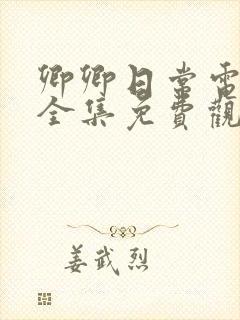 卿卿日常電
全集免費觀
姜武烈